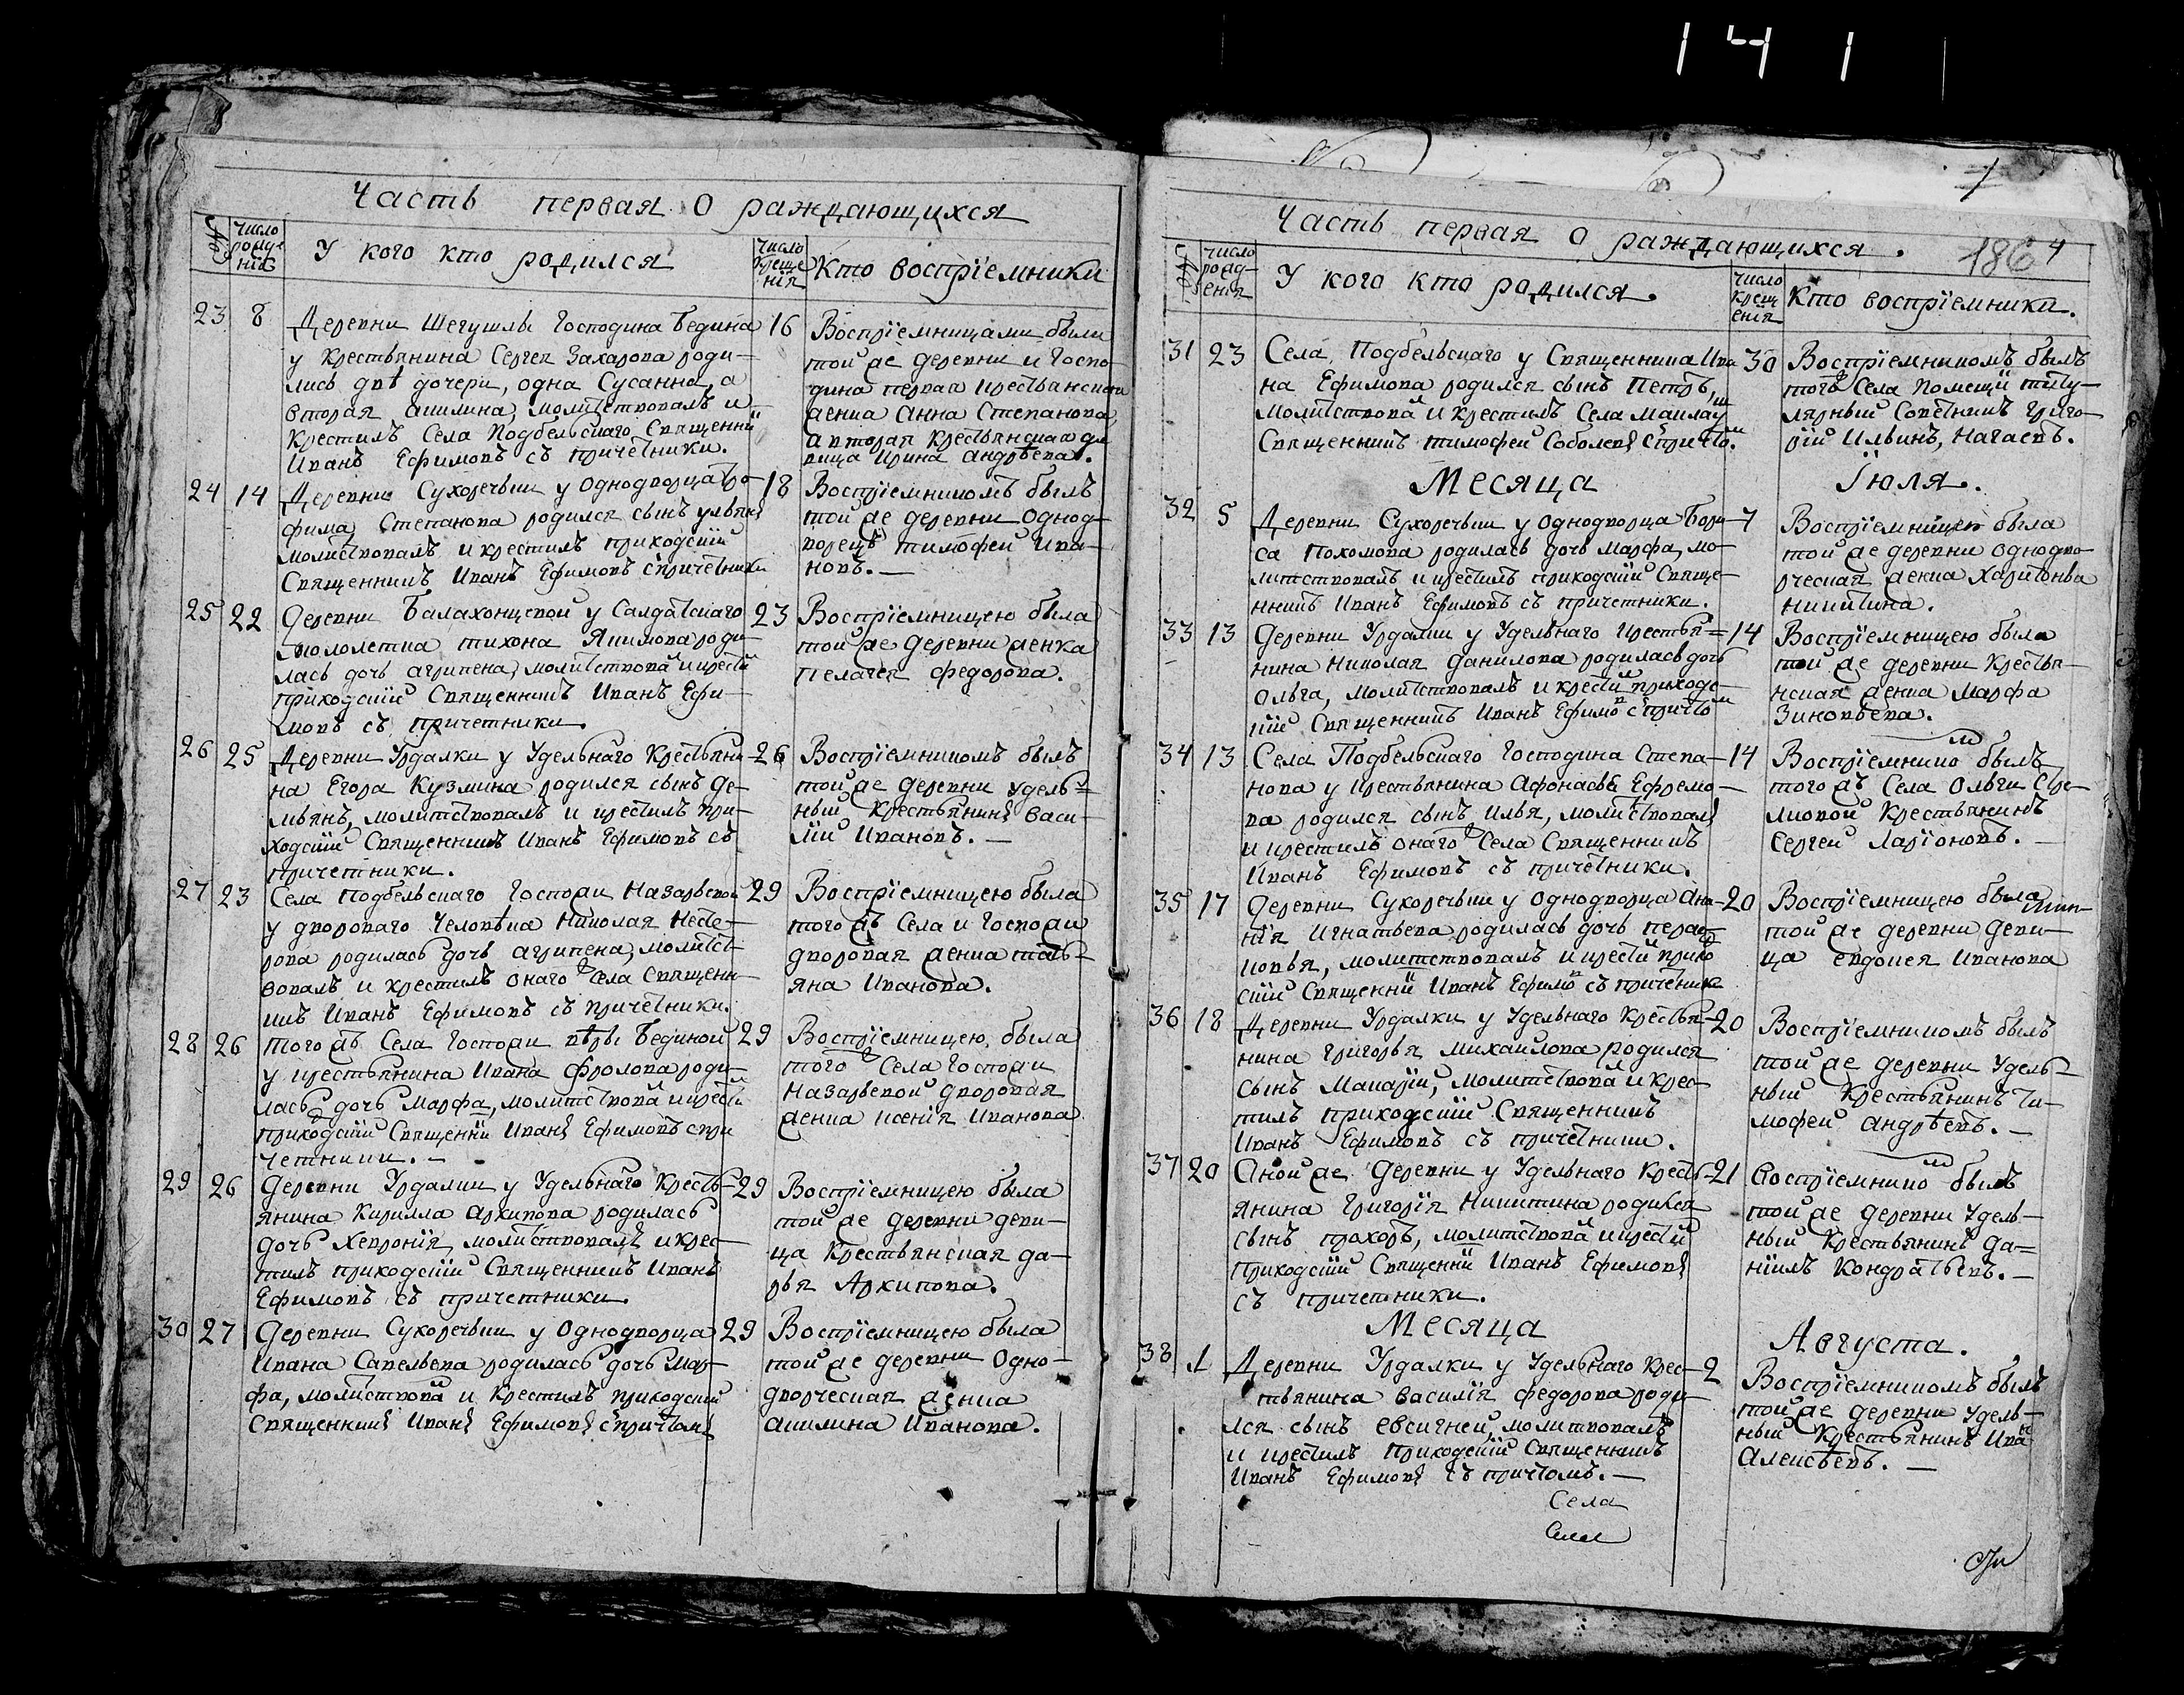 141
Часть первая о раждающихся
№
число рожде нія
У кого кто родился
число креще нія
Кто воспріемники
23 8 Деревни Шегушлы Господина Бедина 16
у крестьянина Сергея Захарова роди-
лись двѣ дочери, одна Сусанна, а
вторая акилина, молитствовалъ и
крестилъ Села Подбельскаго Священни
Иванъ Ефимовъ съ причетники.
Воспріемницами были
той же деревни и Госпо-
дина первая крестьянская
женка Анна Степанова,
а вторая крестьянская де
вица Ирина андрѣева.
24 14 Деревни Сухоречьки у Однодворца тро- 18
фима Степанова родился сынъ ульянъ
молитствовалъ и крестилъ приходскій
Священникъ Иванъ Ефимовъ съ причетники
Воспріемникомъ былъ
той же деревни Однод-
ворецъ тимофей Ива-
новъ. —
25 22 Деревни Балахонцевой у Салдатскаго 23
малолетка тихона Якимова роди-
лась дочь агрипена, молитствовал и крести
приходскій Священникъ Иванъ Ефи-
мовъ съ причетники.
Воспріемницею была
той же деревни женка
Пелагея федорова.
26 25 Деревни Урдалки у Удельнаго Крестьяни- 26
на Егора Кузмина родился сынъ де-
мьянъ, молитствовалъ и крестилъ при-
ходскій Священникъ Иванъ Ефимовъ съ
причетники.
Воспріемникомъ былъ
той же деревни удель-
ный Крестьянинъ васи-
лій Ивановъ. —
27 23 Села Подбельскаго Госпожи Назарьевой 29
у двороваго человѣка Николая Несте-
рова родилась дочь агрипена, молитст-
вовалъ и крестилъ онагожъ Села Священ-
никъ Иванъ Ефимовъ съ причетники.
Воспріемницею была
того жъ Села и Госпожи
дворовая женка тать-
яна Иванова.
28 26 того жъ Села Госпожи вѣры Бединой 29
у крестьянина Ивана Фролова роди-
лась дочь Марфа, молитствовал и крести
приходскій Священни Иванъ Ефимовъ с при
четники. —
Воспріемницею, была
того жъ Села Госпожи
Назарьевой дворовая
женка ксенія Иванова
29 26 Деревни Урдалки у Удельнаго Кресть- 29
янина Кирилла архипова родилась
дочь Хевронія, молитствовалъ и крес-
тилъ приходскій Священникъ Иванъ
Ефимовъ съ причетники.
Воспріемницею была
той же деревни деви-
ца Крестьянская да-
рья Архипова.
30 27 Деревни Сухоречьки у Однодворца 29
Ивана Савельева родилась дочь Мар-
фа, молитствовал и крестилъ приходскій
Священникъ Иванъ Ефимовъ с причтомъ
Воспріемницею была
той же деревни Одно-
дворческая женка
акилина Иванова.
Часть первая о раждающихся.
186 4
№
число рожд- енія
У кого кто родился.
число крещ енія
Кто воспріемники.
31 23 Села Подбельскаго у Священника Ива 30
на Ефимова родился сынъ Петръ,
молитствовал и крестилъ Села Маилау
Священникъ тимофей Соболевъ с причто.
Воспріемникомъ былъ
тогожъ Села Помещи титу-
лярный Советникъ Григо-
рій Ильинъ, Нагаевъ.
Месяца Іюля.
32 5 Деревни Сухоречьки у Однодворца Бори- 7
са Похомова родилась дочь Марфа, мо-
литствовалъ и крестилъ приходскій Свяще-
нникъ Иванъ Ефимовъ съ причетники.
Воспріемницею была
той же деревни однодво-
рческая женка Харитонва
никитина.
33 13 Деревни Урдалки у Удельнаго Крестья- 14
нина Николая данилова родилась дочь
Ольга, молитствовалъ и крести приходс-
кій Священникъ Иванъ Ефимо с причто
Воспріемницею была
той же деревни Крестья-
нская женка Марфа
Зиновьева.
34 13 Села Подбельскаго Господина Степа- 14
нова у крестьянина Афонасья Ефремо-
ва родился сынъ Илья, молитствовалъ
и крестилъ онагожъ Села Священникъ
Иванъ Ефимовъ съ причетники.
Воспріемнико былъ
того жъ Села Ольги
Крестьянинъ
Сергей Ларіоновъ. —
35 17 Деревни Сухоречьки у Однодворца Ана- 20
нія Игнатьева родилась дочь перас-
ковья, молитствовалъ и крести прихо
скій Священни Иванъ Ефимо съ причетник
Воспріемницею была
той же деревни деви-
ца евдокея Иванова
36 18 Деревни Урдалки у Удельнаго Крестья- 20
нина Григорья Михаилова родился
сынъ Макарій, молитствовал и крес-
тилъ приходскій Священникъ
Иванъ Ефимовъ съ причетники.
Воспріемникомъ былъ
той же деревни Удель-
ный Крестьянинъ ти-
мофей андрѣевъ. —
37 20 Оной же деревни у Удельнаго Кресть- 21
янина Григорія Никитина родился
сынъ прохоръ, молитствовал и крести
приходскій Священни Иванъ Ефимовъ
съ причетники.
Воспріемнико былъ
той же деревни Удель-
ный Крестьянинъ да-
ніилъ Кондратьевъ. —
Месяца Августа.
38 1 Деревни Урдалки у Удельнаго Крес- 2
тьянина василія федорова роди-
лся сынъ евсигней, молитвовалъ
и крестилъ приходскій Священникъ
Иванъ Ефимовъ съ причтомъ. —
Воспріемникомъ былъ
той же деревни Удель-
ный Крестьянинъ Ива
Алексѣевъ. —
Села